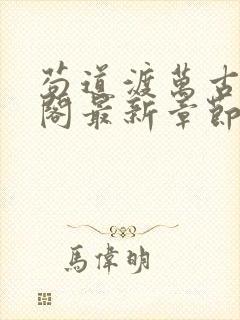 苟道渡萬古
閣最新章節
馬偉明